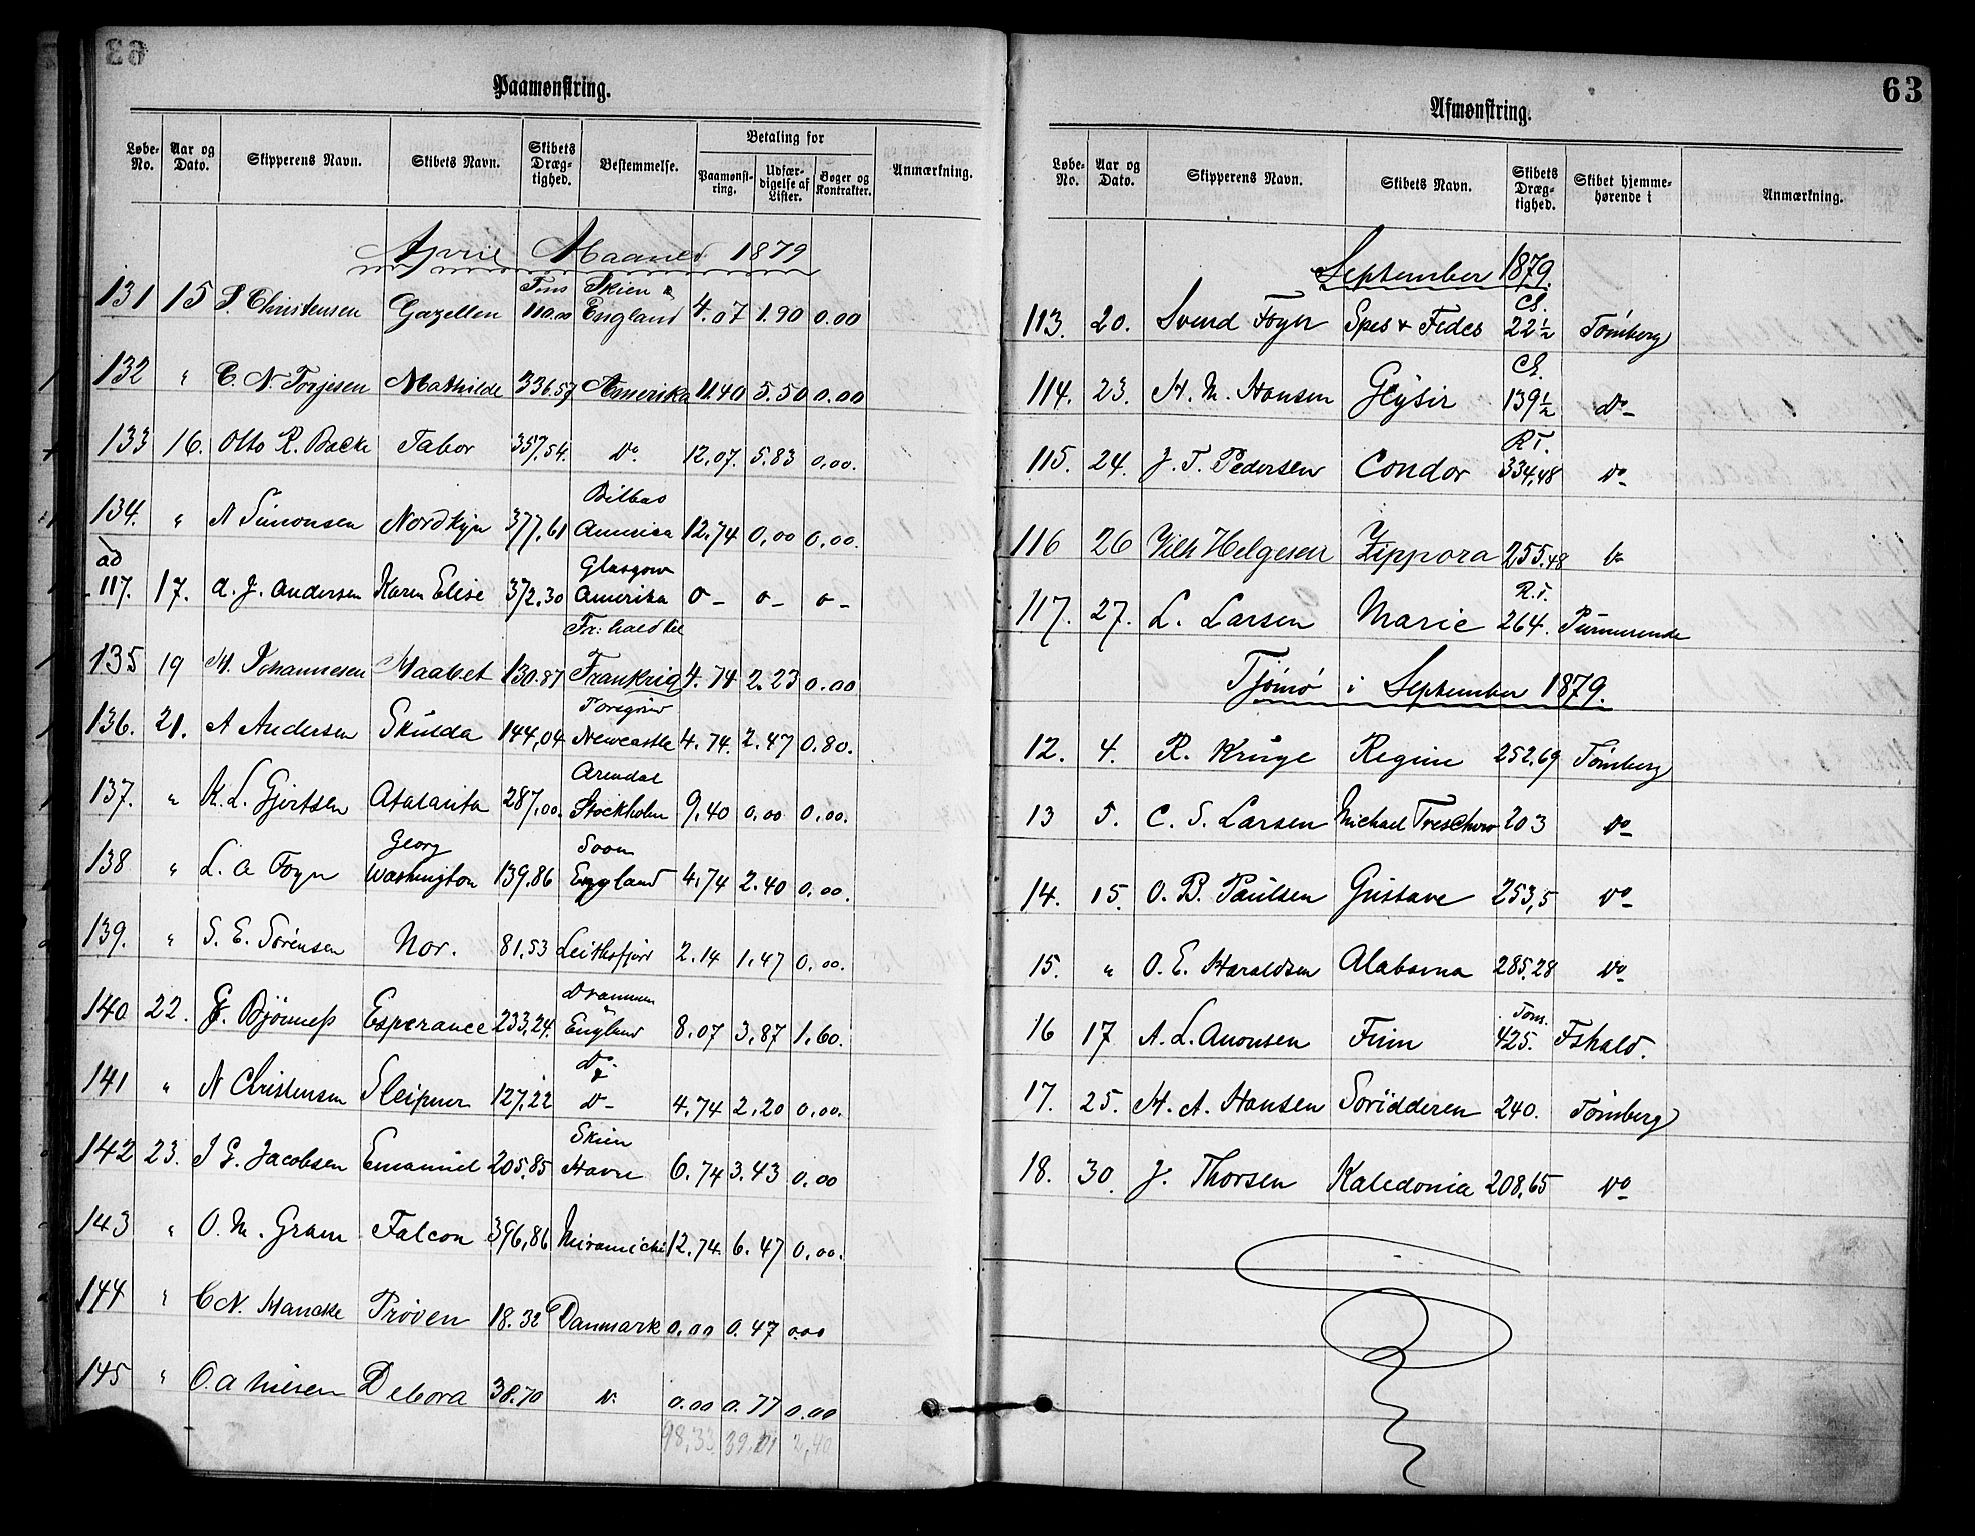 Paamønstring.
Løbe-No. Aar og Dato. Skipperens Navn. Skibets Navn. Skibets Dræg-tighed. Bestemmelse. Betaling for Paamønst-ring. Udfær-digelse af Lister. Bøger og Kontrakter. Anmærkning.
April Maaned 1879
Tons Skien &
131 15 P. Christensen Gazellen 110.00 England 4.07 1.90 0.00
132 " C. N. Torjesen Mathilde 336.57 Amerika 11.40 5.50 0.00
133 16. Otto R. Backe Tabor 357.54. Do. 12.07. 5.83 0.00.
Bilbao
134. " N Simonsen Nordkyn 377,61 Amerika 12.74 0,00 0,00.
ad Glasgow
117. 17. A. J. Andersen Karen Elise 372.30 Amerika 0- 0- 0-
Fr: hald til
135 19 M. Johannesen Maabet 130.87 Frankrig 4.74 2.23 0.00
136. 21. A Andersen Skulda 144,04 Newcastle 4.74. 2.47 0.80.
Arendal
137. " K. L. Gjertsen Atalanta 287,00. Stockholm 9,40 0,00 0,00.
Georg Soon
138 " L. A Foyn Washington 139,86 England 4,74 2.40 0,00.
139. " S. E. Sørensen Nor. 81,53 Leithsfjord 2.14 1,47 0,00.
Drammen
140 22. Bjønness Esperance 233,24. England 8.07 3,87 1,60.
Do. &
141 " N Christensen Sleipner 127,22 Do- 4,74 2,20 0,00.
Skien
142 23. J G. Jacobsen Emanuel 205.85 Havre 6.74 3.43 0.00
143 " O. M. Gram Falcon 396,86 Miramichi 12.74. 6.47 0,00.
144 " C N. Mancke Prøven 18.32 Danmark 0.00 0.47 0.00
145 " O. A Nielsen Debora 38.70 Do. 0.00 0.77 0.00
98,33 39,01 2,40
63
Afmønstring.
Løbe-No. Aar og Dato. Skipperens Navn. Skibets Navn. Skibets Dræg-tighed. Skibet hjemme-hørende i Anmærkning.
September 1879.
Cl.
113. 20. Svend Foyn Spes & Fides 22 1/2 Tønsberg
Cl.
114. 23. H. M. Hansen Geysir 139 1/2 Do-
R T.
115. 24. J. T. Pedersen Condor 334,48 Do-
116 26 Vilh Helgesen Zippora 255.48 Do
R. T.
117. 27. L. Larsen Marie 264. Purmerende
Tjømø i September 1879.
12. 4. R. Kruge Regine 252,69 Tønsberg
13 5. C. S. Larsen Michael Treschow 203 Do-
14. 15. O. B. Paulsen Gustave 253,5 Do-
15. " O. E. Haraldsen Alabama 285,28 Do
Tons.
16 17 A. L. Anonsen Finn 425. Fshald.
17. 25. H. A. Hansen Soridderen 240. Tønsberg
18. 30. J. Thorsen Kaledonia 208,65 Do-